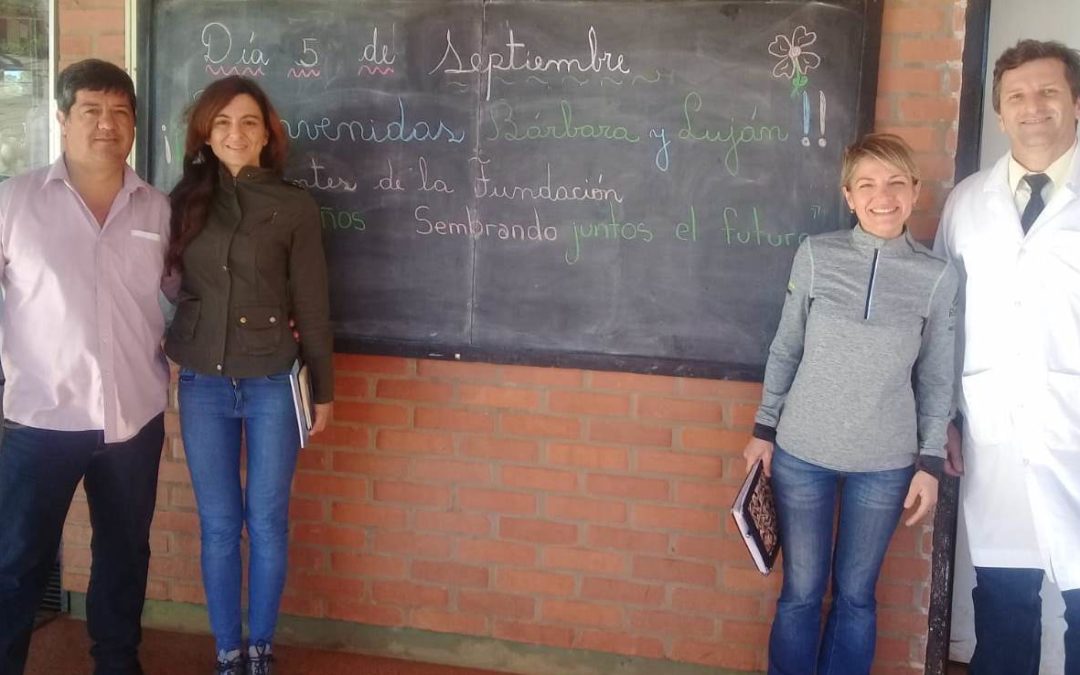 Día 5 de Septiembre
¡ nvenidas Bárbara y Luján !!
ntes de la Fundación
ños Sembrando juntos el futuro"